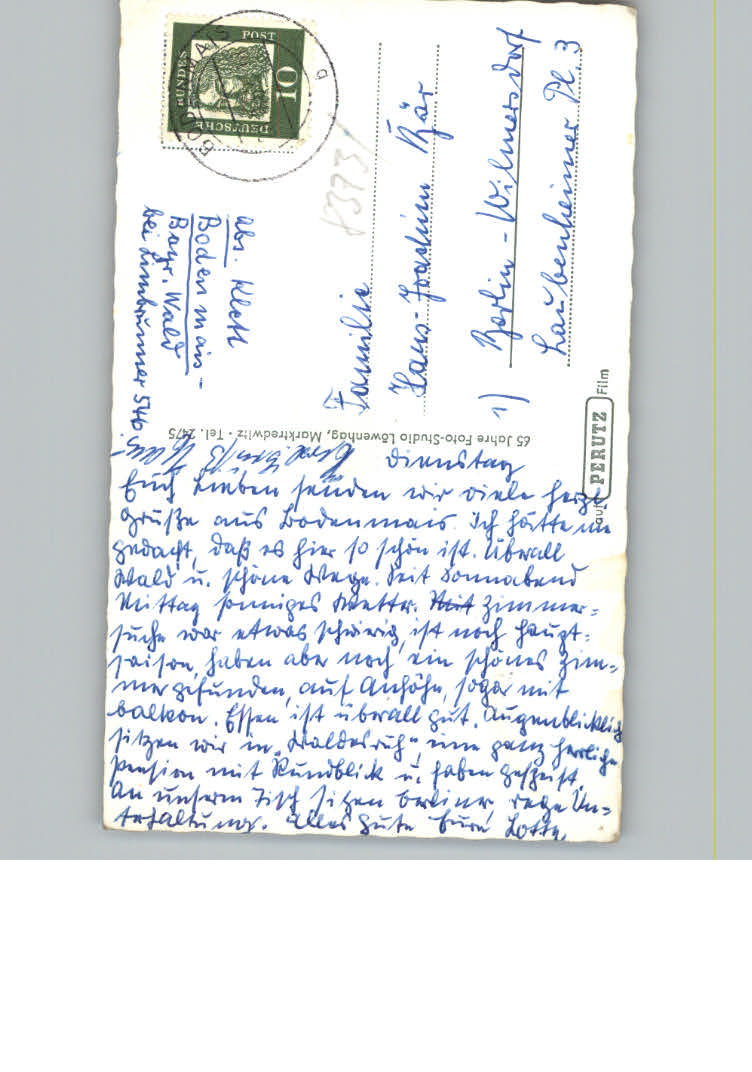 DEUTSCHE
BUNDES
POST
10
BODENMAIS
a
83731
Abs. Klett
Bodenmais -
Bayr. Wald
bei Limbrunner 54b
Familie
Hans-Joachim Bär
1) Berlin-Wilmersdorf
Laubenheimer Pl. 3
65 Jahre Foto-Studio Löwenhag, Marktredwitz - Tel. 2475
auf PERUTZ Film
Dienstag
Euch Lieben senden wir viele herzl.
Grüße aus Bodenmais. Ich hätte nie
gedacht, daß es hier so schön ist. Überall
Wald u. schöne Wege. Seit Sonnabend
Mittag sonniges Wetter. Zimmer=
suche war etwas schwierig, ist noch Haupt=
saison, haben aber noch ein schönes Zim=
mer gefunden, auf Anhöhe, sogar mit
Balkon. Essen ist überall gut. Augenblicklich
sitzen wir in „Waldesruh" eine ganz herrliche
Pension mit Rundblick u. haben gespeist.
An unserm Tisch sitzen Berliner, rege Un=
terhaltung. Alles Gute Eure Lotte